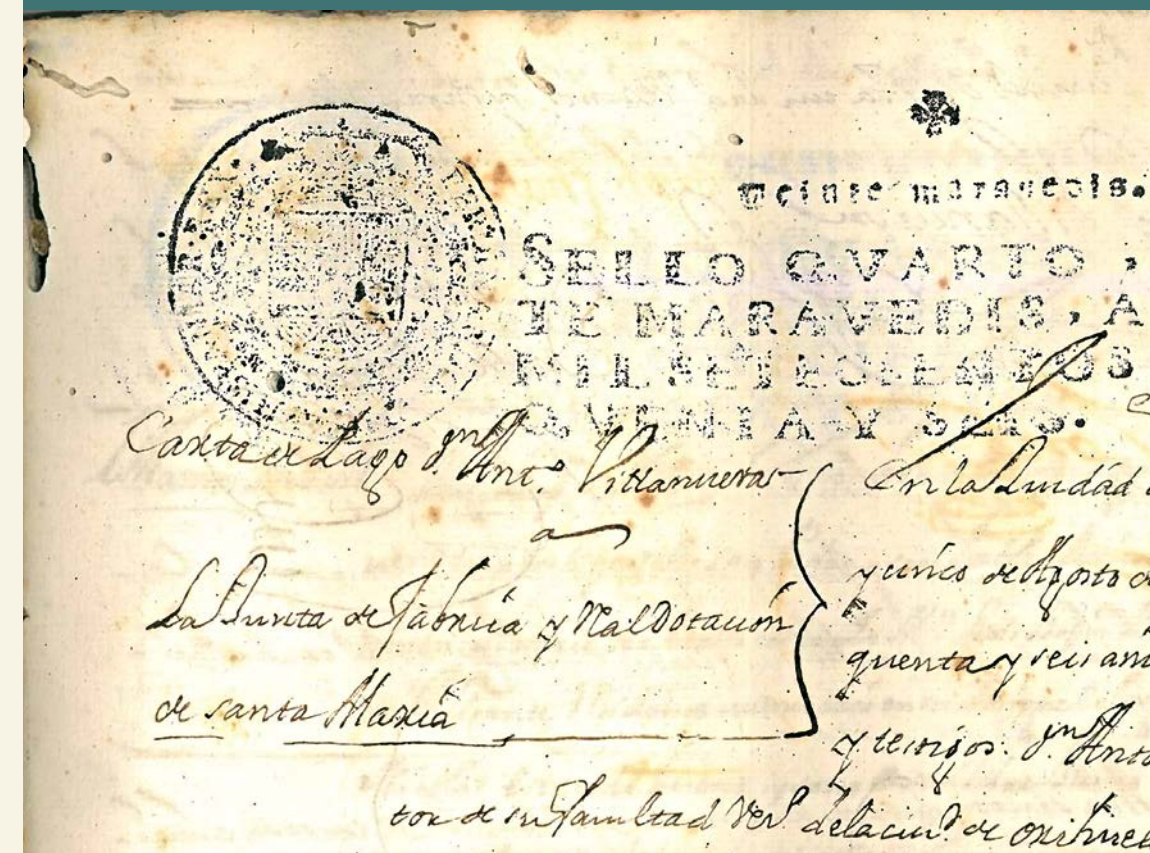 Veinte maravedis.
SELLO QVARTO,
TE MARAVEDIS, A
MIL SETECIENTOS
QVENTA Y SEIS.
Carta de Pago d.n Ant.o Villanueva
a
La Junta de fàbrica y Rαl Dotación
de santa Maria
En la Ciudád
y cinco de Agosto de
quenta y seis añ
y testigos. d.n Anto
tor de su facultad Vez.o dela ciu.d de orihuel